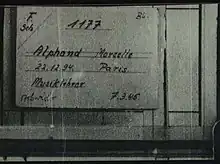 F.
Sch. 1177 Bu.
Alphand Marcelle
22.12.94 Paris
Musiklehrer
7.3.45